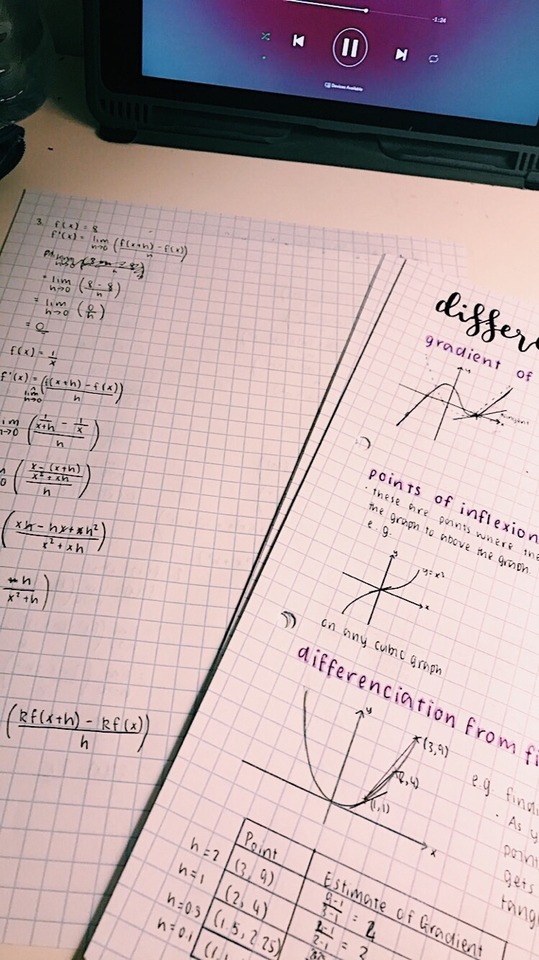 -1:24
Devices Available
3. f(x) = 8
f'(x) = lim h→0 (f(x+h) - f(x) / h)
= lim h→0 (8 - 8 / h)
= lim h→0 (0 / h)
= 0
f(x) = 1/x
f'(x) = lim h→0 (f(x+h) - f(x) / h)
h→0 (1/x+h - 1/x / h)
(x - (x+h) / x² + xh / h)
(xh - hx + xh² / x² + xh)
-h / x² + h)
(kf(x+h) - kf(x) / h)
differe
gradient of
y
x
points of inflexion
· these are points where the
the graph to above the graph.
e.g.
y
y=x²
x
on any cubic graph
differenciation from fi
y
(3,9)
(2,4)
(1,1)
x
e.g findi
· As y
point
gets
tang
Point
Estimate of Gradient
h=2
(3, 9)
9-1 / 3-1 = 2
h=1
(2, 4)
2-1 = 2
h=0.5
(1.5, 2.25)
h=0.1
(1.1